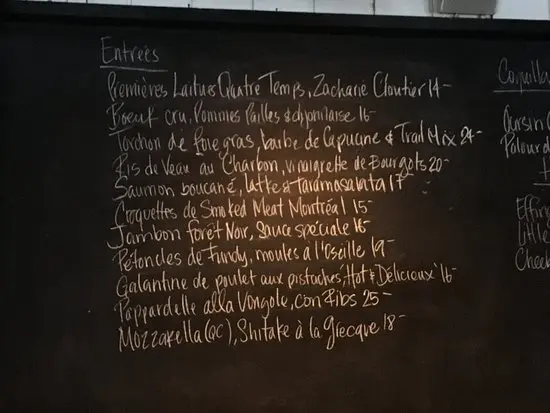 Entrées
Premières Laitues Quatre Temps, Zacharie Cloutier 14-
Boeuf cru, Pommes Pailles & dijonnaise 16-
Torchon de foie gras, barbe de Capucine & Trail Mix 24-
Ris de Veau au Charbon, vinaigrette de Bourgots 20-
Saumon boucané, latte & taramasalata 17
Croquettes de Smoked Meat Montréal 15-
Jambon forêt Noir, Sauce spéciale 16-
Pétoncles de Fundy, moules à l'oseille 19-
Galantine de poulet aux pistaches, Hot & Délicieux 16-
Pappardelle alla Vongole, con Ribs 25-
Mozzarella (QC), Shitake à la grecque 18-
Coquilla
Oursin
Palourd
Effin
Little
Cheek